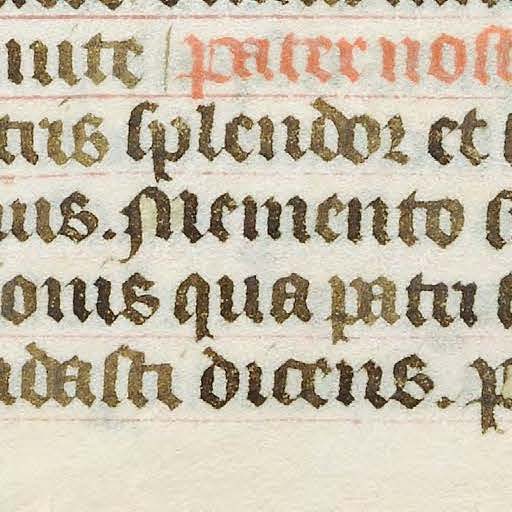 iute pater nost
tris splendor et
us. Memento
onis qua patri
dasti dicens. p